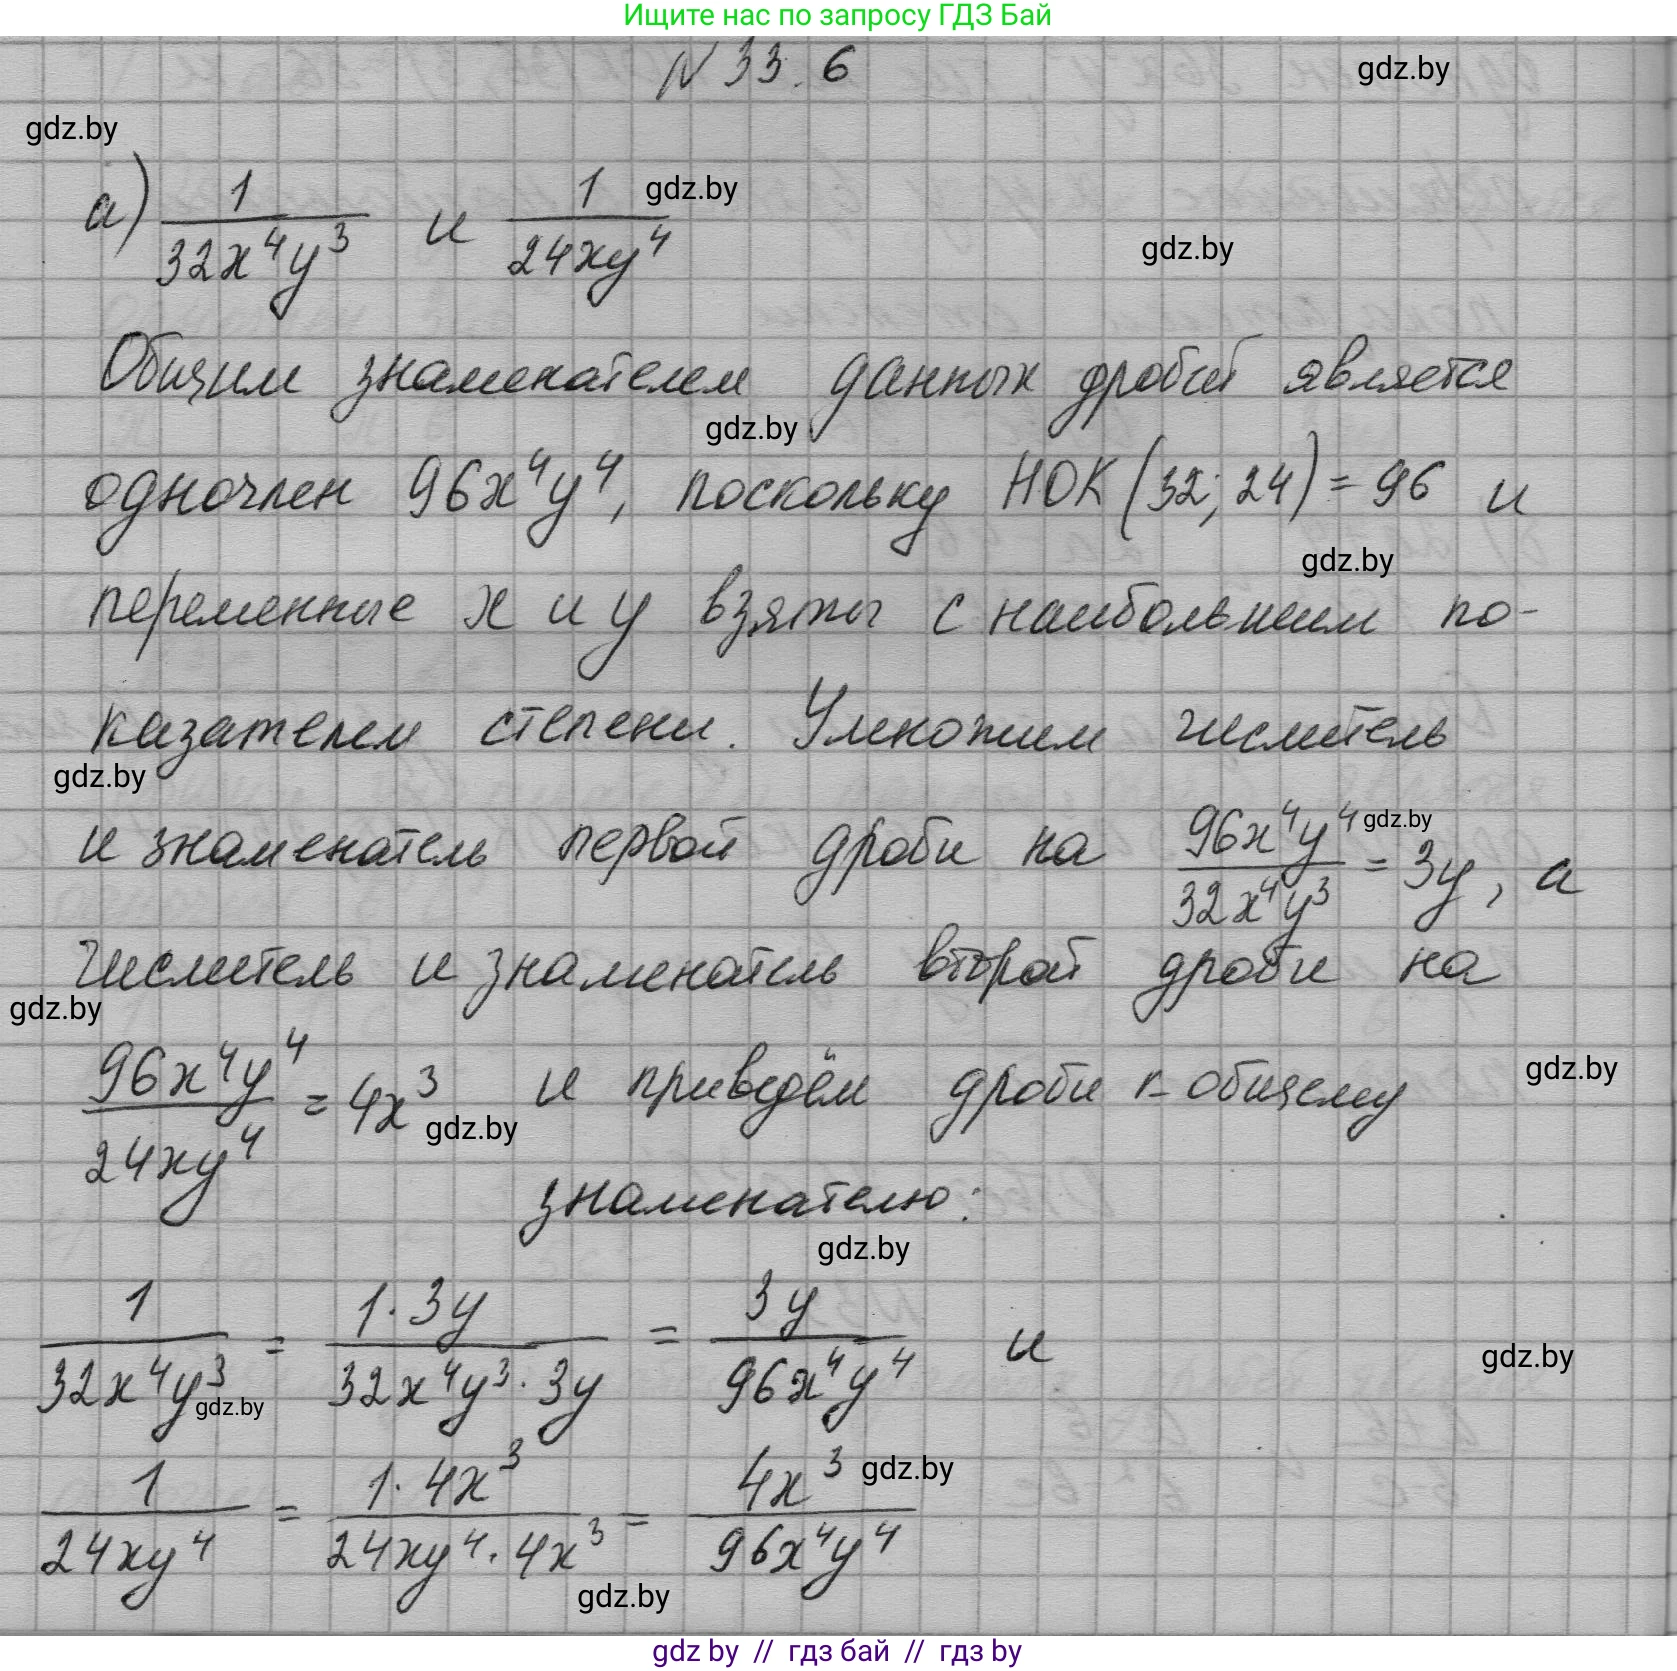 Ищите нас по запросу ГДЗ Бай
N 33.6
gdz.by
gdz.by
а) 1/(32x⁴y³) и 1/(24xy⁴)
gdz.by
gdz.by
Общим знаменателем данных дробей является
gdz.by
одночлен 96x⁴y⁴, поскольку НОК (32; 24) = 96 и
gdz.by
переменные x и y взяты с наибольшим по-
казателем степени. Умножим числитель
gdz.by
и знаменатель первой дроби на 96x⁴y⁴/(32x⁴y³) = 3y, а
gdz.by
числитель и знаменатель второй дроби на
gdz.by
96x⁴y⁴/(24xy⁴) = 4x³ и приведём дроби к общему
gdz.by
gdz.by
знаменателю:
gdz.by
1/(32x⁴y³) = (1·3y)/(32x⁴y³·3y) = 3y/(96x⁴y⁴) и
gdz.by
gdz.by
1/(24xy⁴) = (1·4x³)/(24xy⁴·4x³) = 4x³/(96x⁴y⁴)
gdz.by
gdz.by
gdz by // гдз бай // гдз by